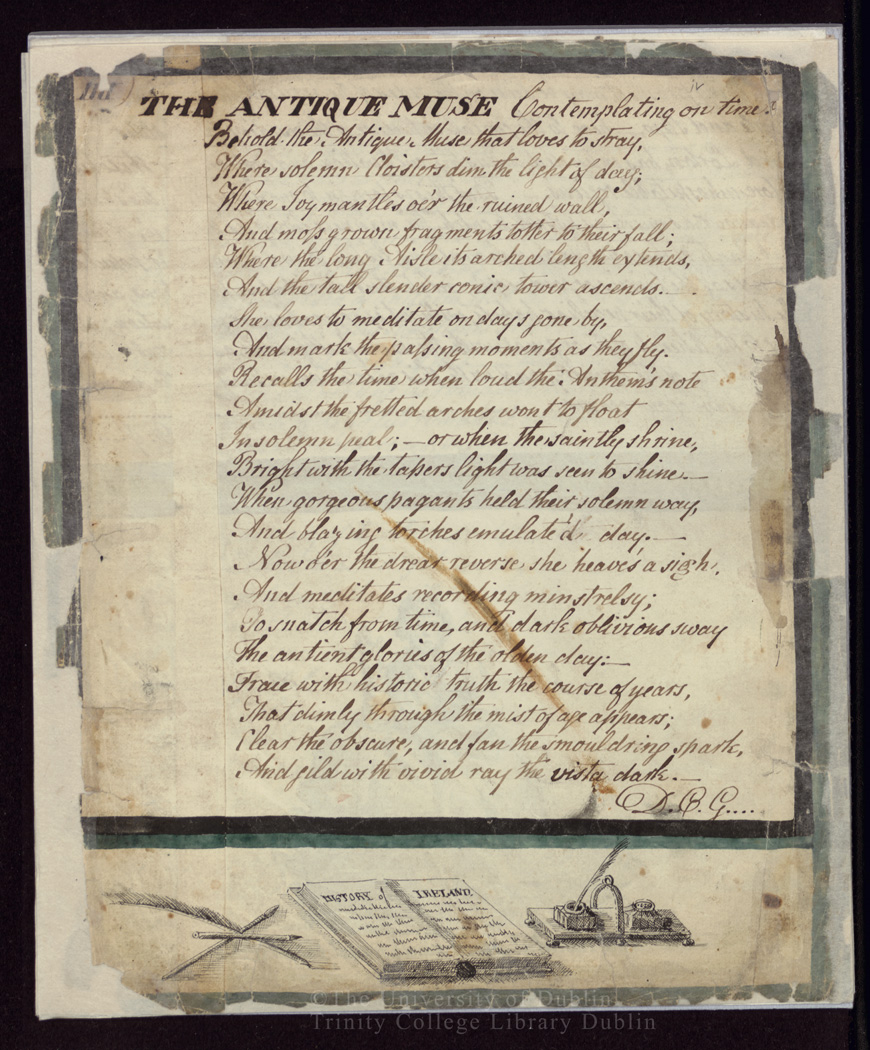 iv
THE ANTIQUE MUSE Contemplating on time.
Behold the Antique Muse that loves to stray,
Where solemn Cloisters dim the light of day;
Where Ivy mantles oér the ruined wall,
And moss grown fragments totter to their fall;
Where the long Aisle its arched length extends,
And the tall slender conic tower ascends.—
She loves to meditate on days gone by,
And mark the passing moments as they fly.
Recalls the time when loud the Anthem's note
Amidst the fretted arches wont to float
In solemn peal; — or when the saintly shrine,
Bright with the tapers light was seen to shine.—
When gorgeous pagants held their solemn way,
And blazing torches emulate'd day.—
Now o'er the drear reverse she heave's a sigh,
And meditates recording minstrelsy;
To snatch from time, and dark oblivious sway
The antient glories of the olden day:—
Trace with historic truth the course of years,
That dimly through the mist of age appears;
Clear the obscure, and fan the smouldring spark,
And gild with vivid ray the vista dark.—
D. B. G....
HISTORY of IRELAND
©The University of Dublin
Trinity College Library Dublin